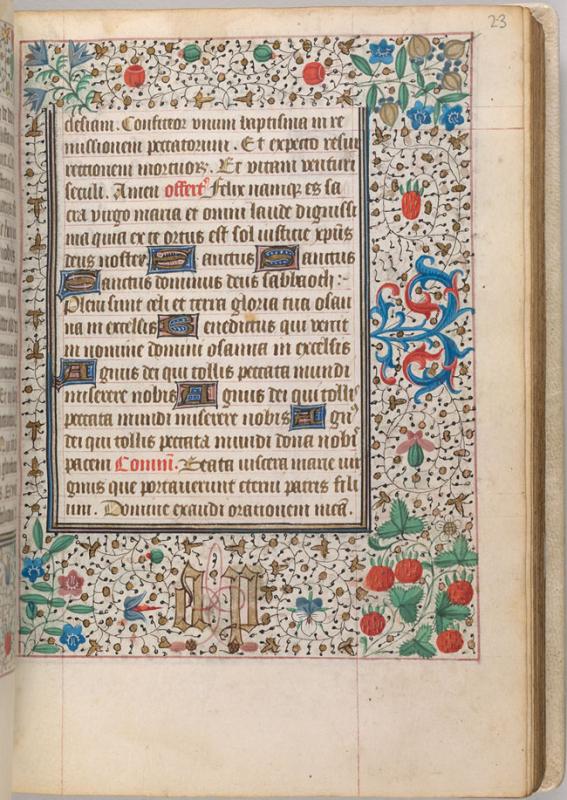 23
clesiam. Confiteor vnum baptisma in re
missionem peccatorum. Et expecto resur
rectionem mortuoꝝ. Et vitam venturi
seculi. Amen offertꝰ Felix namqꝫ es sa
cra virgo maria et omni laude dignissi
ma quia ex te ortus est sol iusticie xp̄us
deus noster Sanctus Sanctus
Sanctus dominus deus sabbaoth:
Pleni sunt celi et terra gloria tua osan
na in excelsis Benedictus qui venit
in nomine domini osanna in excelsis
Agnus dei qui tollis peccata mundi
miserere nobis Agnus dei qui tollis
peccata mundi miserere nobis Agnꝰ
dei qui tollis peccata mundi dona nobis
pacem Commū. Beata viscera marie vir
ginis que portauerunt eterni patris fili
um. Domine exaudi orationem meā.